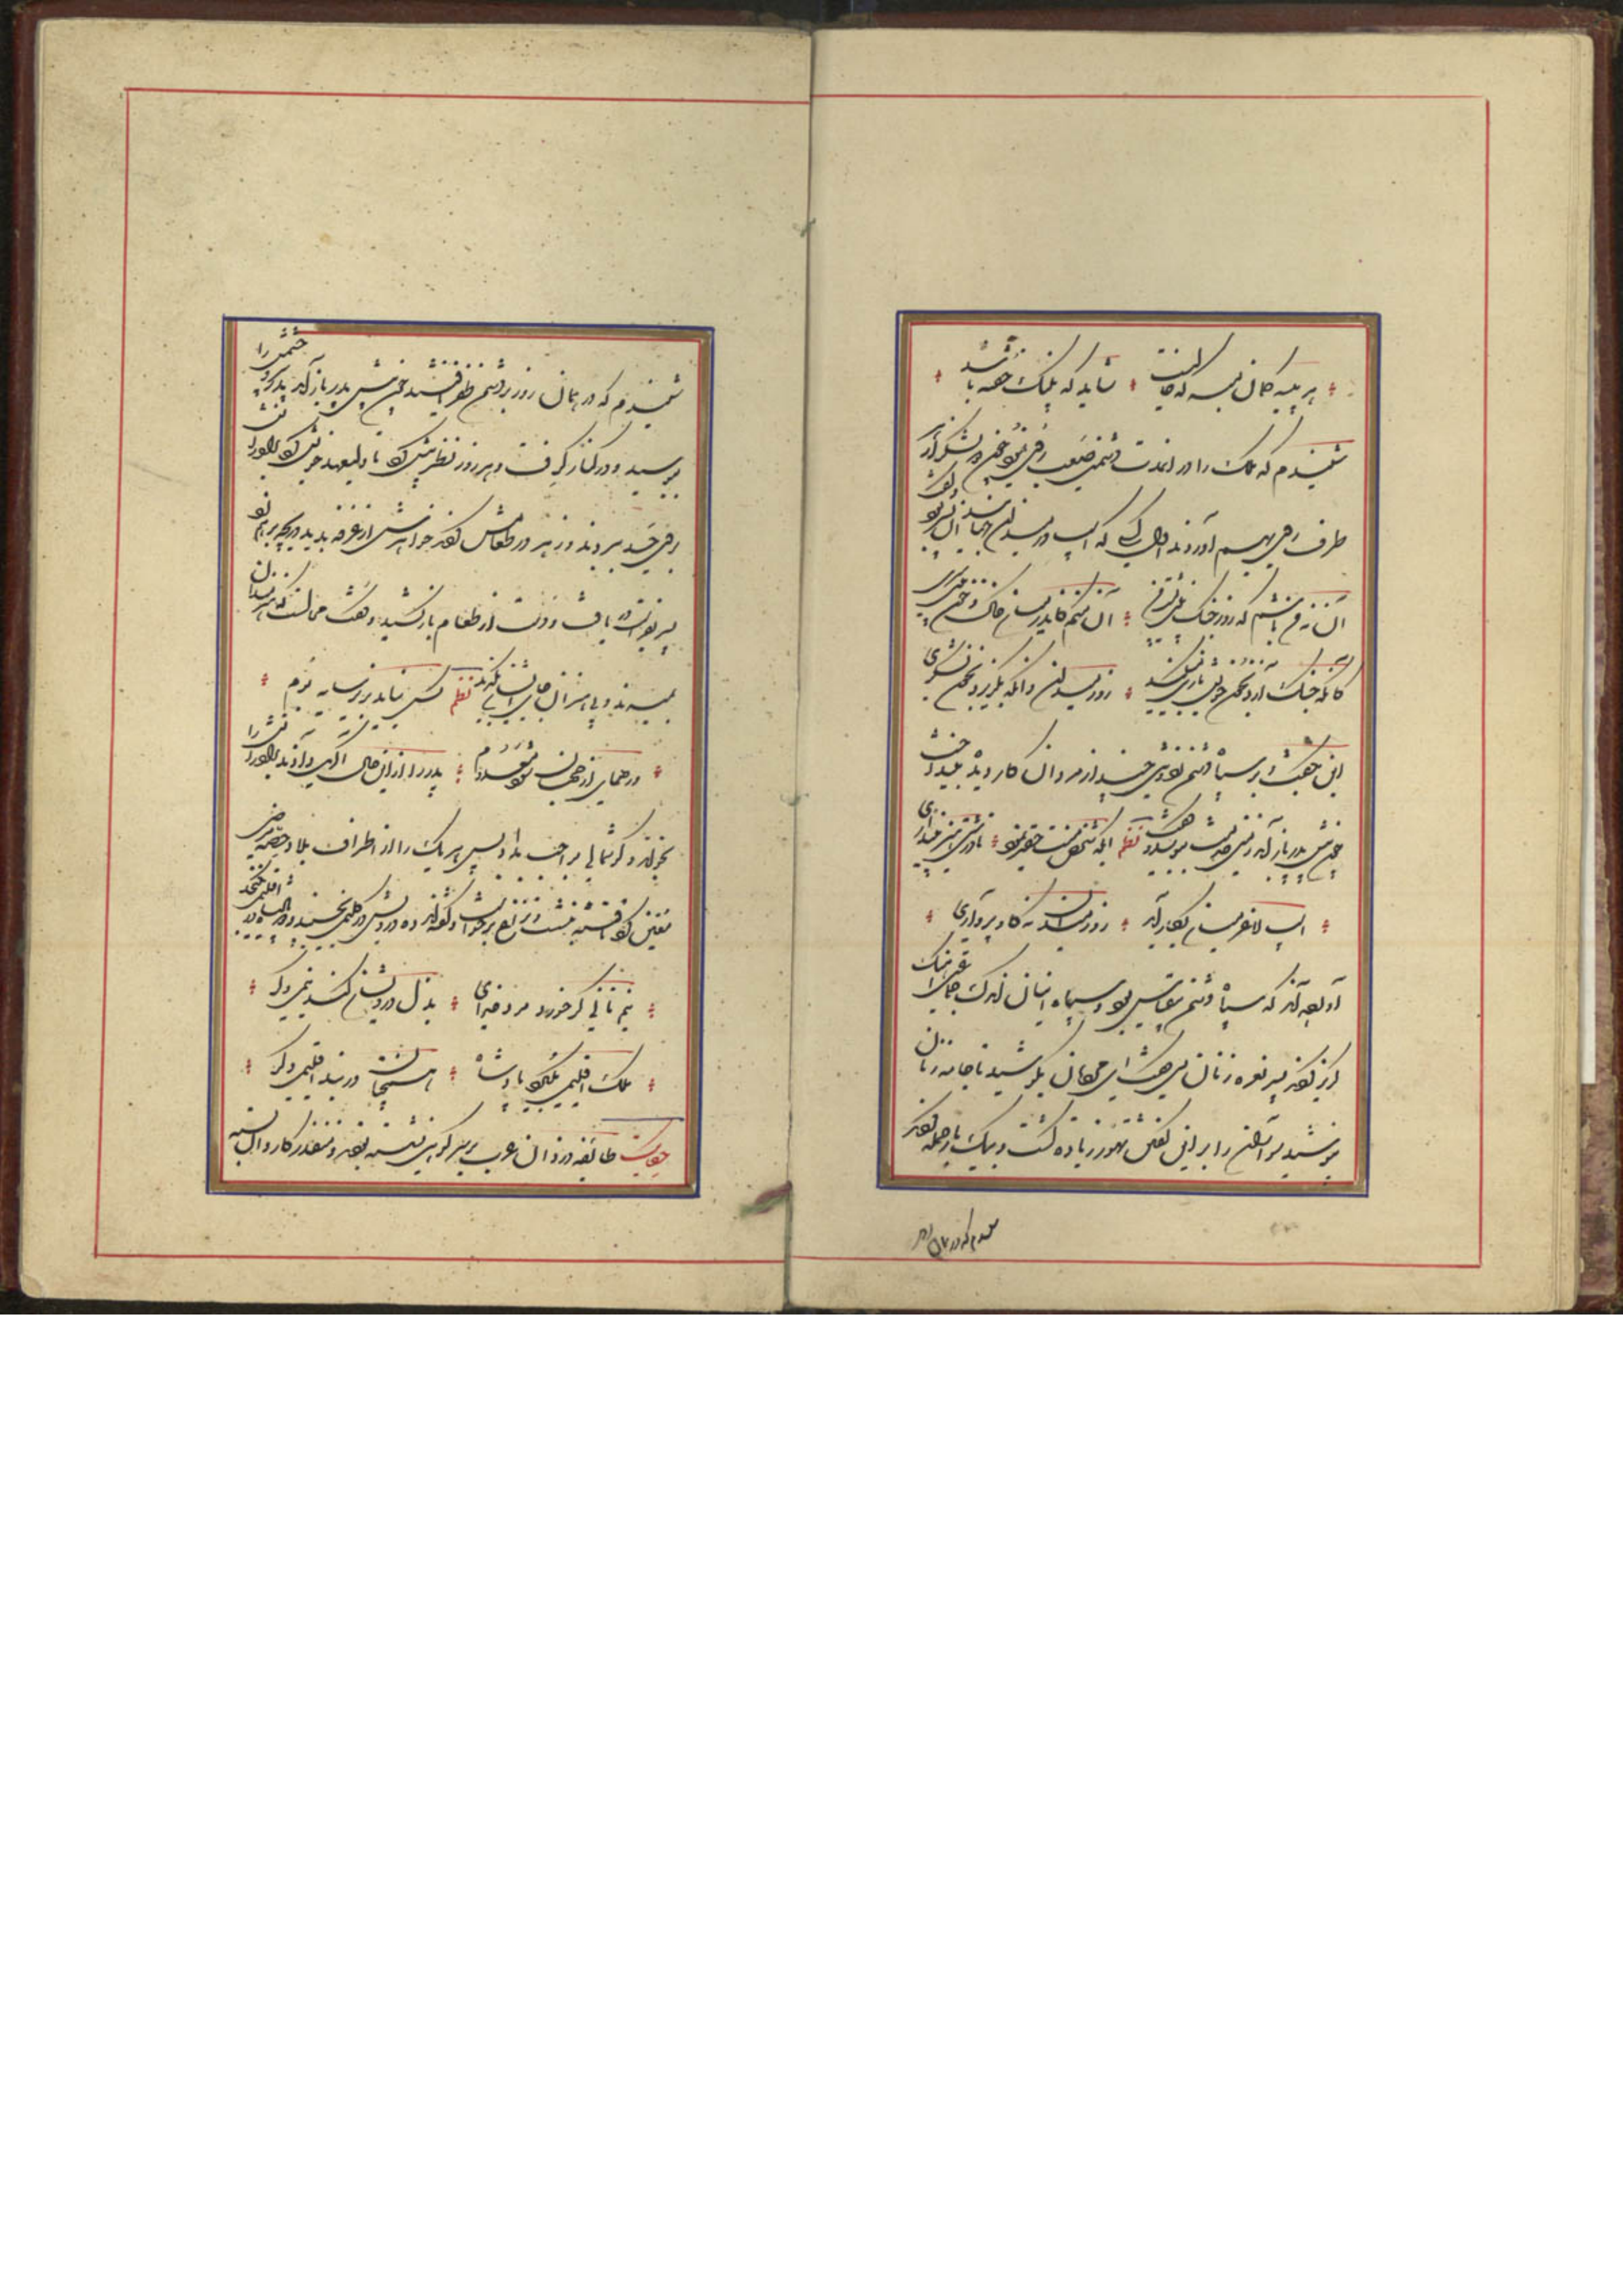 هر بیشه گمان مبر که خالیست شاید که پلنگ خفته باشد
شنیدم که ملک را در آن مدت دشمنی صعب روی نمود چون دو لشکر از هر
طرف روی بهم آوردند اول کسی که اسب در میدان جهانید آن پسر بود و گفت
آن نه من باشم که روز جنگ بینی پشت من آن منم کاندر میان خاک و خون بینی سری
کانکه جنگ آرد بخون خویش بازی میکند روز میدان وانکه بگریزد بخون لشکری
این بگفت و بر سپاه دشمن زد و تنی چند از مردان کاردیده بینداخت
چون پیش پدر باز آمد زمین خدمت ببوسید و گفت نظم ایکه شخص منت حقیر نمود تا درشتی هنر نپنداری
اسب لاغر میان بکار آید روز میدان نه گاو پرواری
آورده اند که سپاه دشمن بود و سپاه اینان اندک جماعتی آهنگ
گریز کردند پسر نعره زنان میگفت ای مردان بکوشید تا جامه زنان
نپوشید سواران را بدین گفتن تهور زیاده گشت و بیک بار حمله کردند
شنیدم که در همان روز
شنیدم که در همان روز بر دشمن ظفر یافتند چون پیش پدر باز آمد پدر سر و چشمش را
ببوسید و در کنار گرفت و هر روز نظر بیش کرد تا ولیعهد خویش کرد برادرانش
بروی حسد بردند و زهر در طعامش کردند خواهرش از غرفه بدید دریچه بر هم زد
پسر بفراست دریافت و دست از طعام باز کشید و گفت محالست که هنرمندان
بمیرند و بی هنران جای ایشان بگیرند نظم کس نیاید بزیر سایه بوم
ور همای از جهان شود معدوم پدر را از این حال آگهی دادند برادرانش را
بخواند و گوشمالی بواجب بداد پس هر یک را از اطراف بلاد حصه مرضی
معین کرد تا فتنه بنشست و نزاع برخواست و گفته اند ده درویش در گلیمی بخسبند و دو پادشاه در اقلیمی نگنجد
نیم نانی گر خورد مرد خدای بذل درویشان کند نیمی دگر
ملک اقلیمی بگیرد پادشاه همچنان در بند اقلیمی دگر
حکایت طایفه دزدان عرب بر سر کوهی نشسته بودند و منفذ کاروان بسته